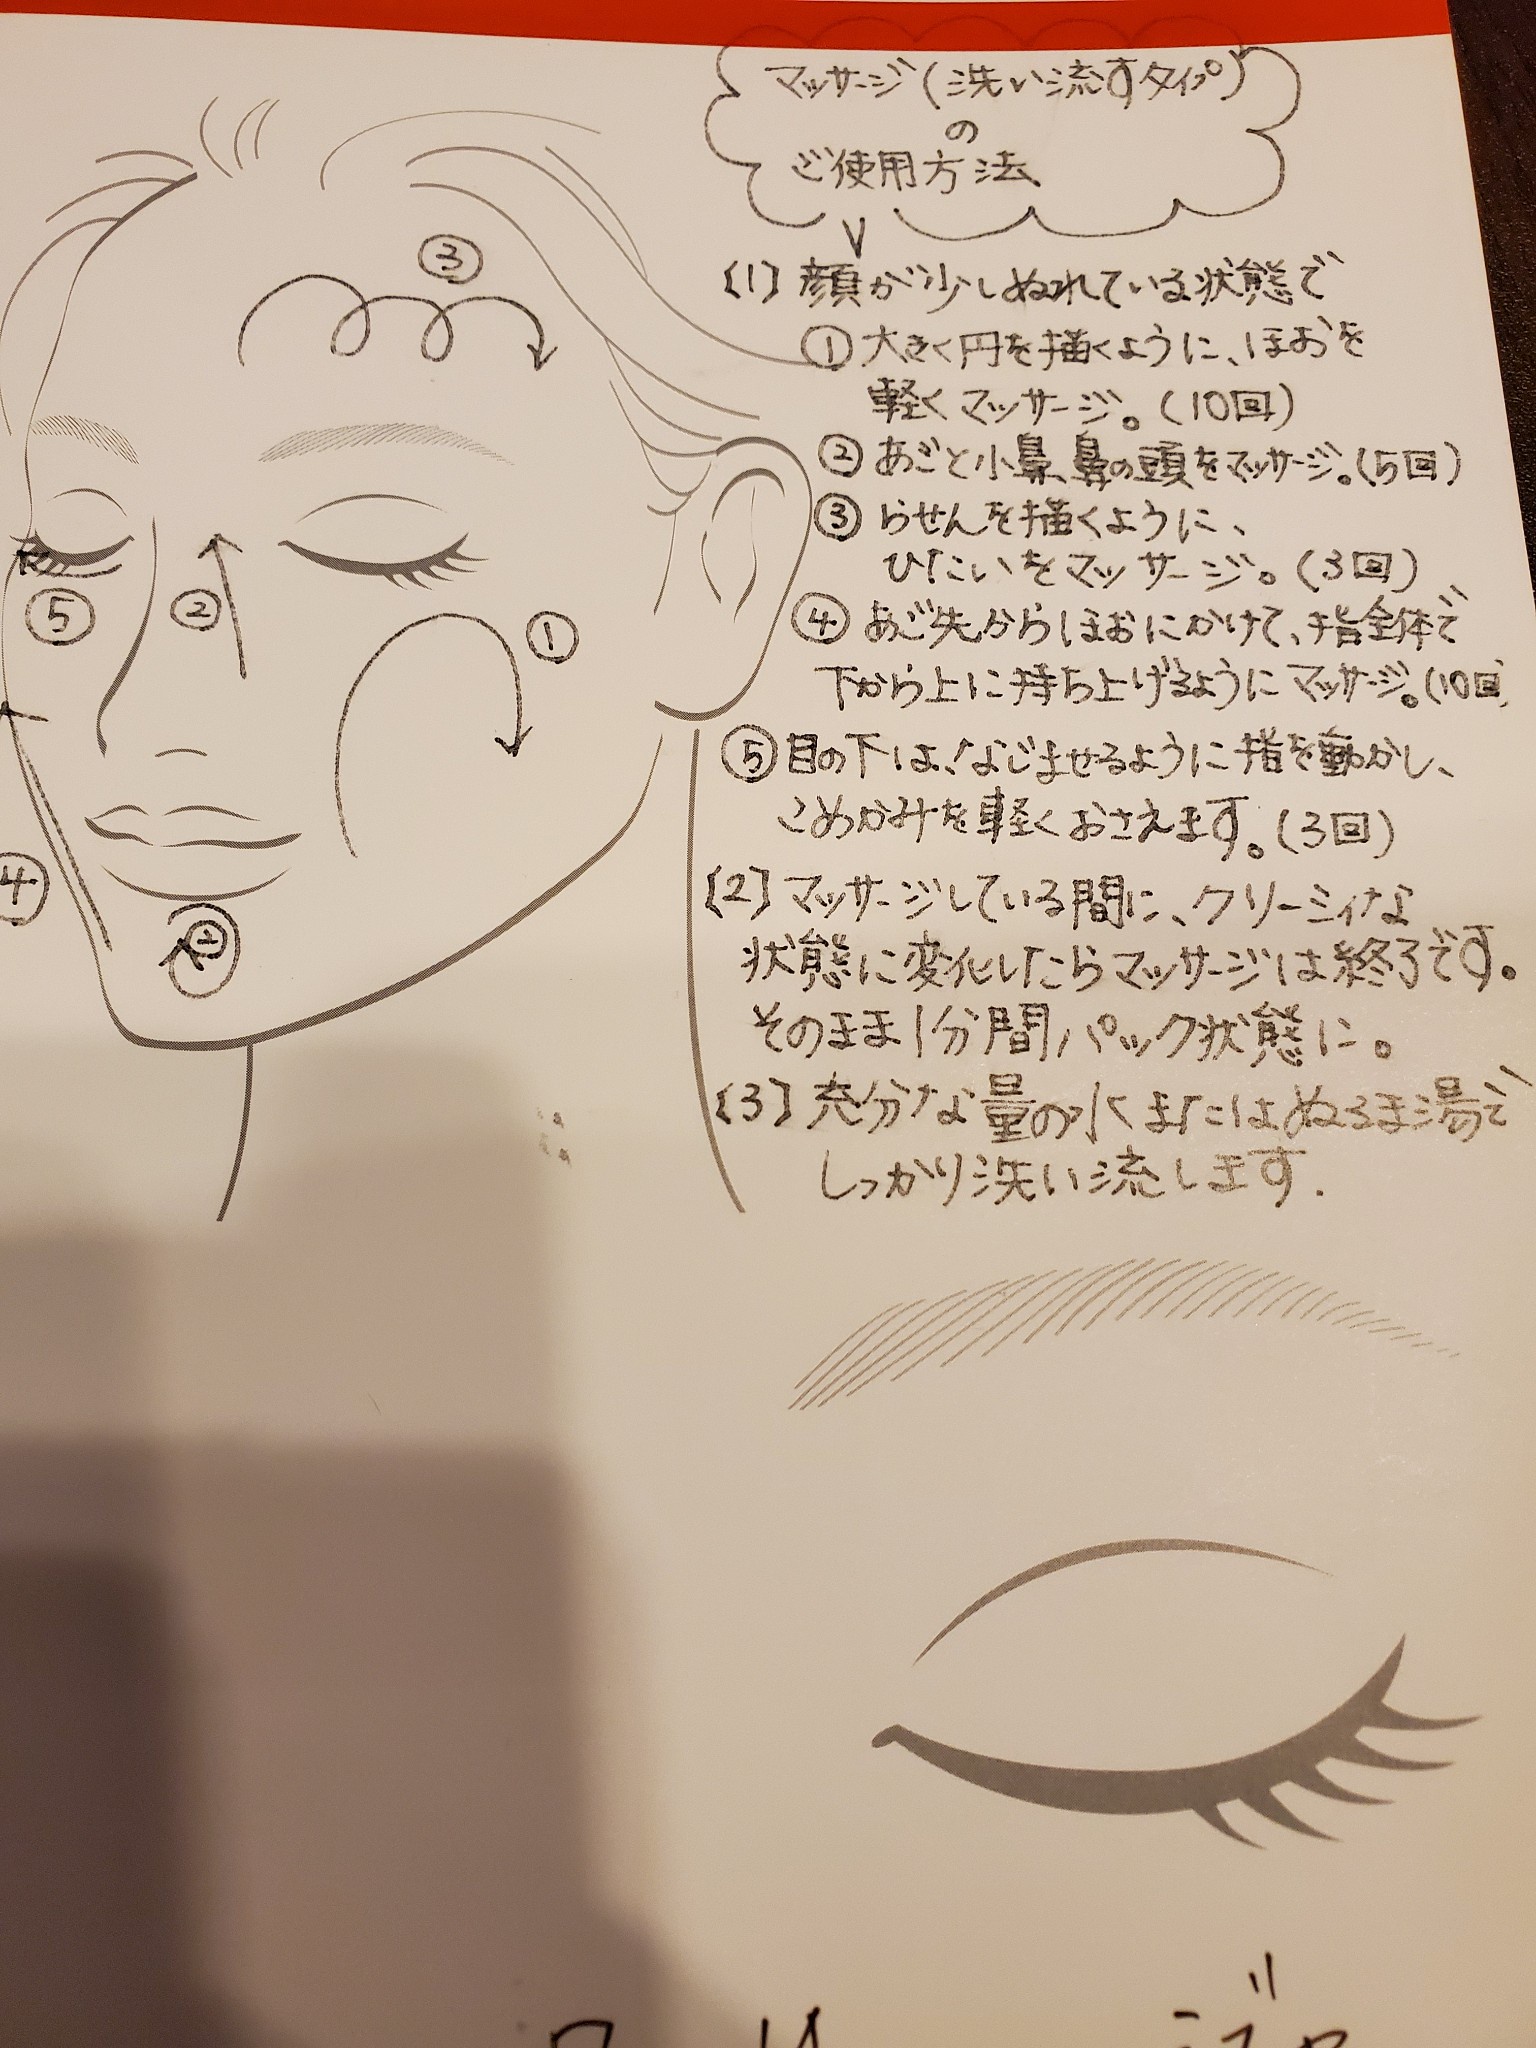 マッサージ(洗い流すタイプ)
の
ご使用方法
〔1〕顔が少しぬれている状態で
①大きく円を描くように、ほおを
軽くマッサージ。(10回)
②あごと小鼻、鼻の頭をマッサージ。(5回)
③らせんを描くように、
ひたいをマッサージ。(3回)
④あご先からほおにかけて、指全体で
下から上に持ち上げるようにマッサージ。(10回)
⑤目の下は、なじませるように指を動かし、
こめかみを軽くおさえます。(3回)
〔2〕マッサージしている間に、クリーミィな
状態に変化したらマッサージは終了です。
そのまま1分間パック状態に。
〔3〕充分な量の水またはぬるま湯で
しっかり洗い流します.
③
⑤
②
①
④
②